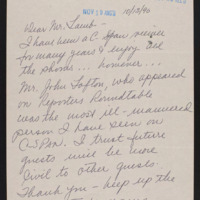 NOV 13 RECD
10/13/90
Dear Mr. Lamb -
I have been a C-Span viewer
for many years & enjoy all
the shows... however...
Mr. John Lofton, who appeared
on Reporters Roundtable
was the most ill-mannered
person I have seen on
CSPAN. I trust future
guests will be more
civil to other guests.
Thank you - keep up the